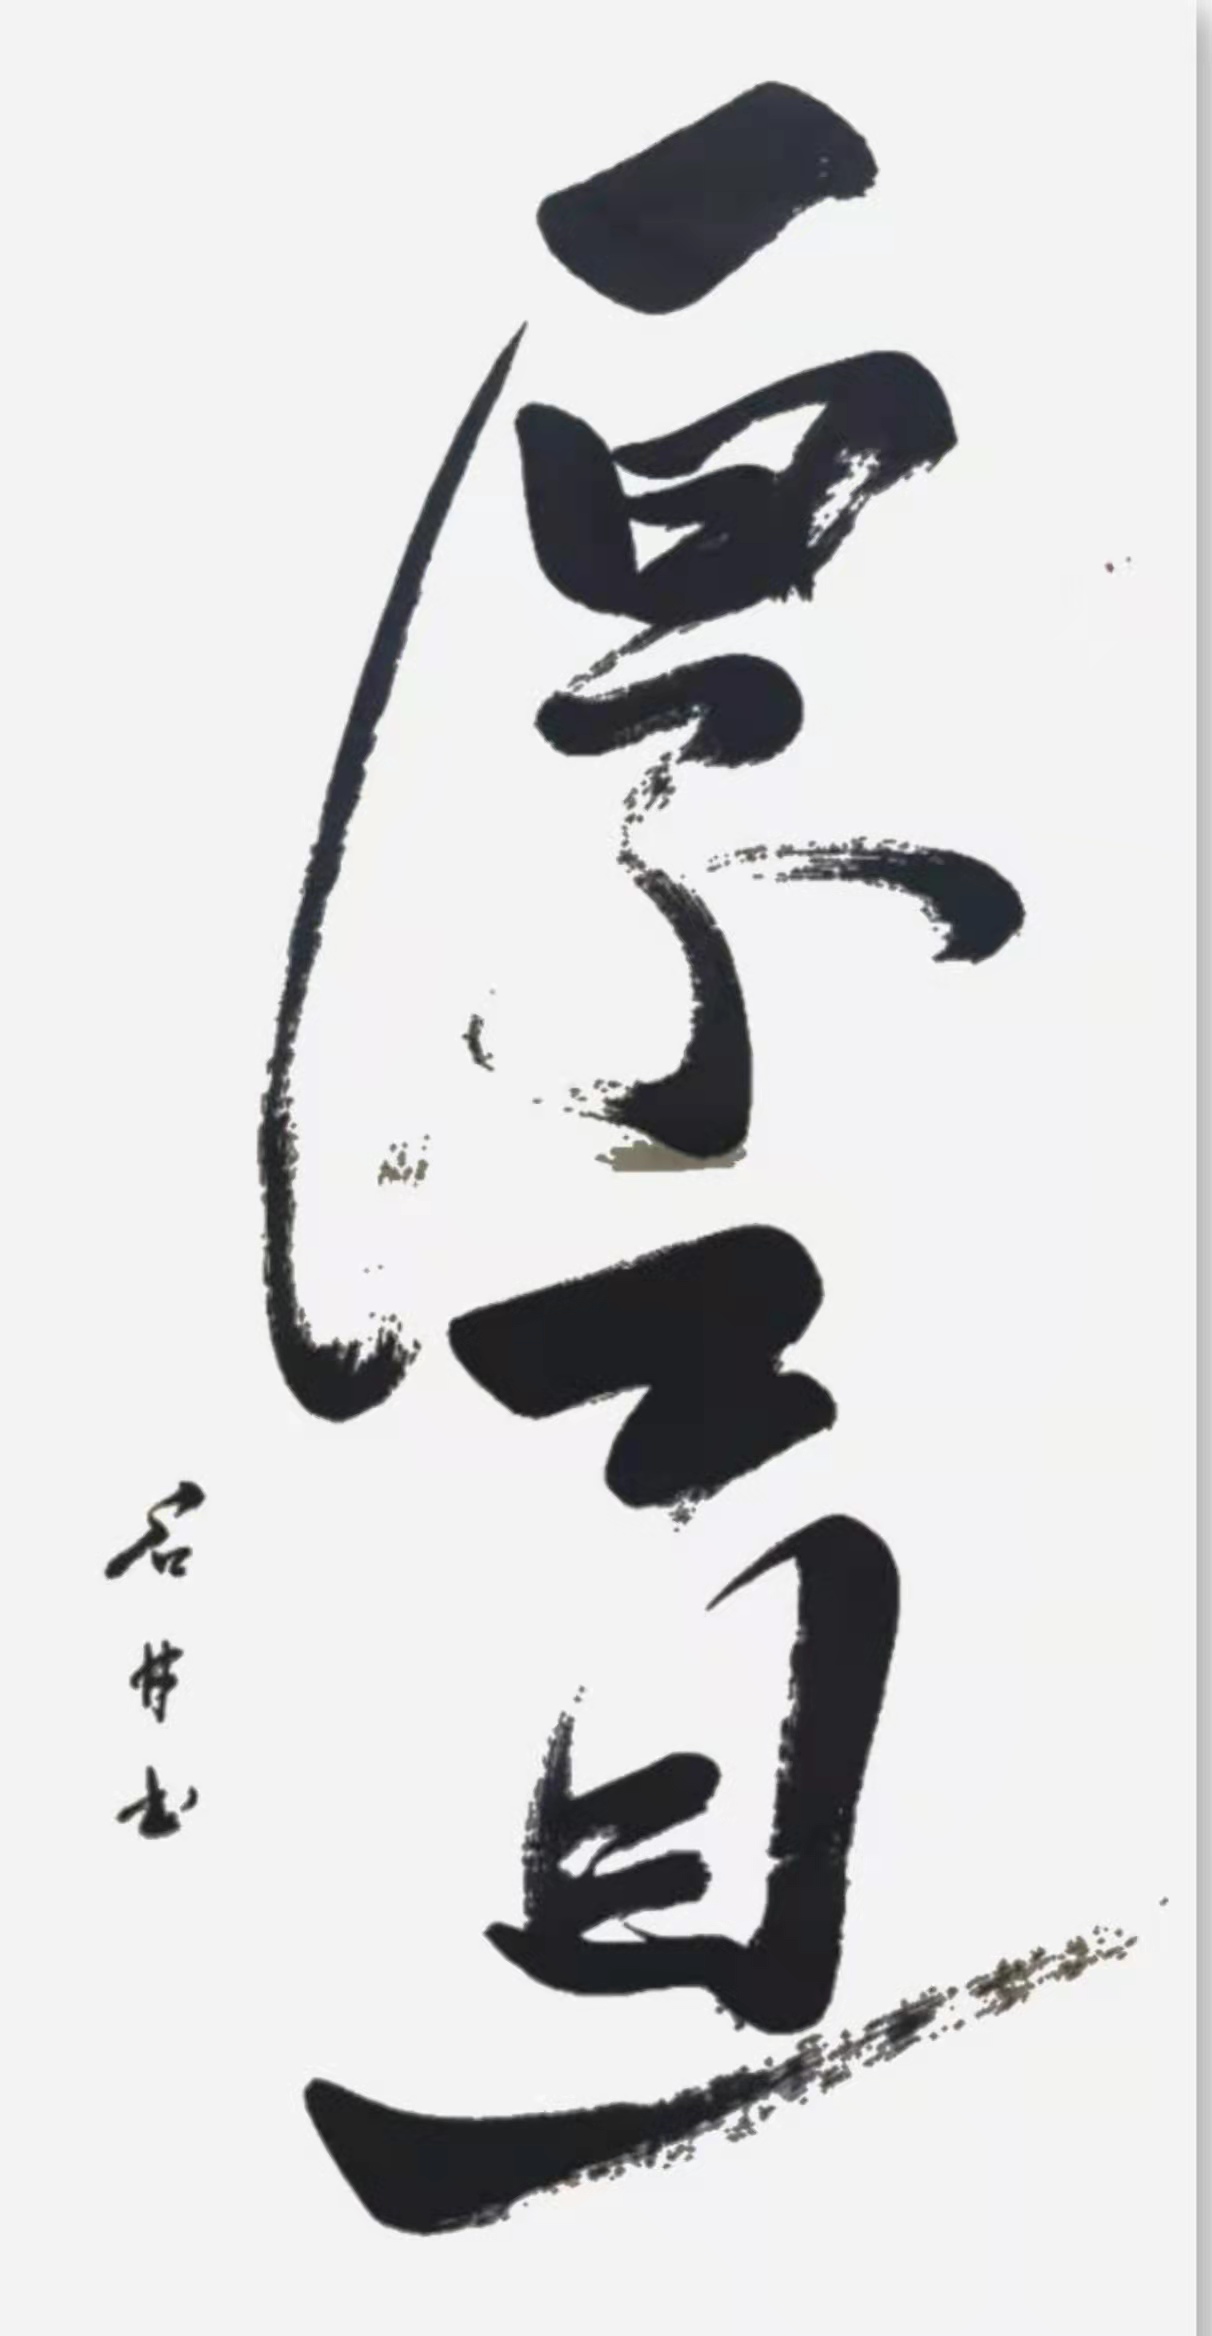 厚直
石井书